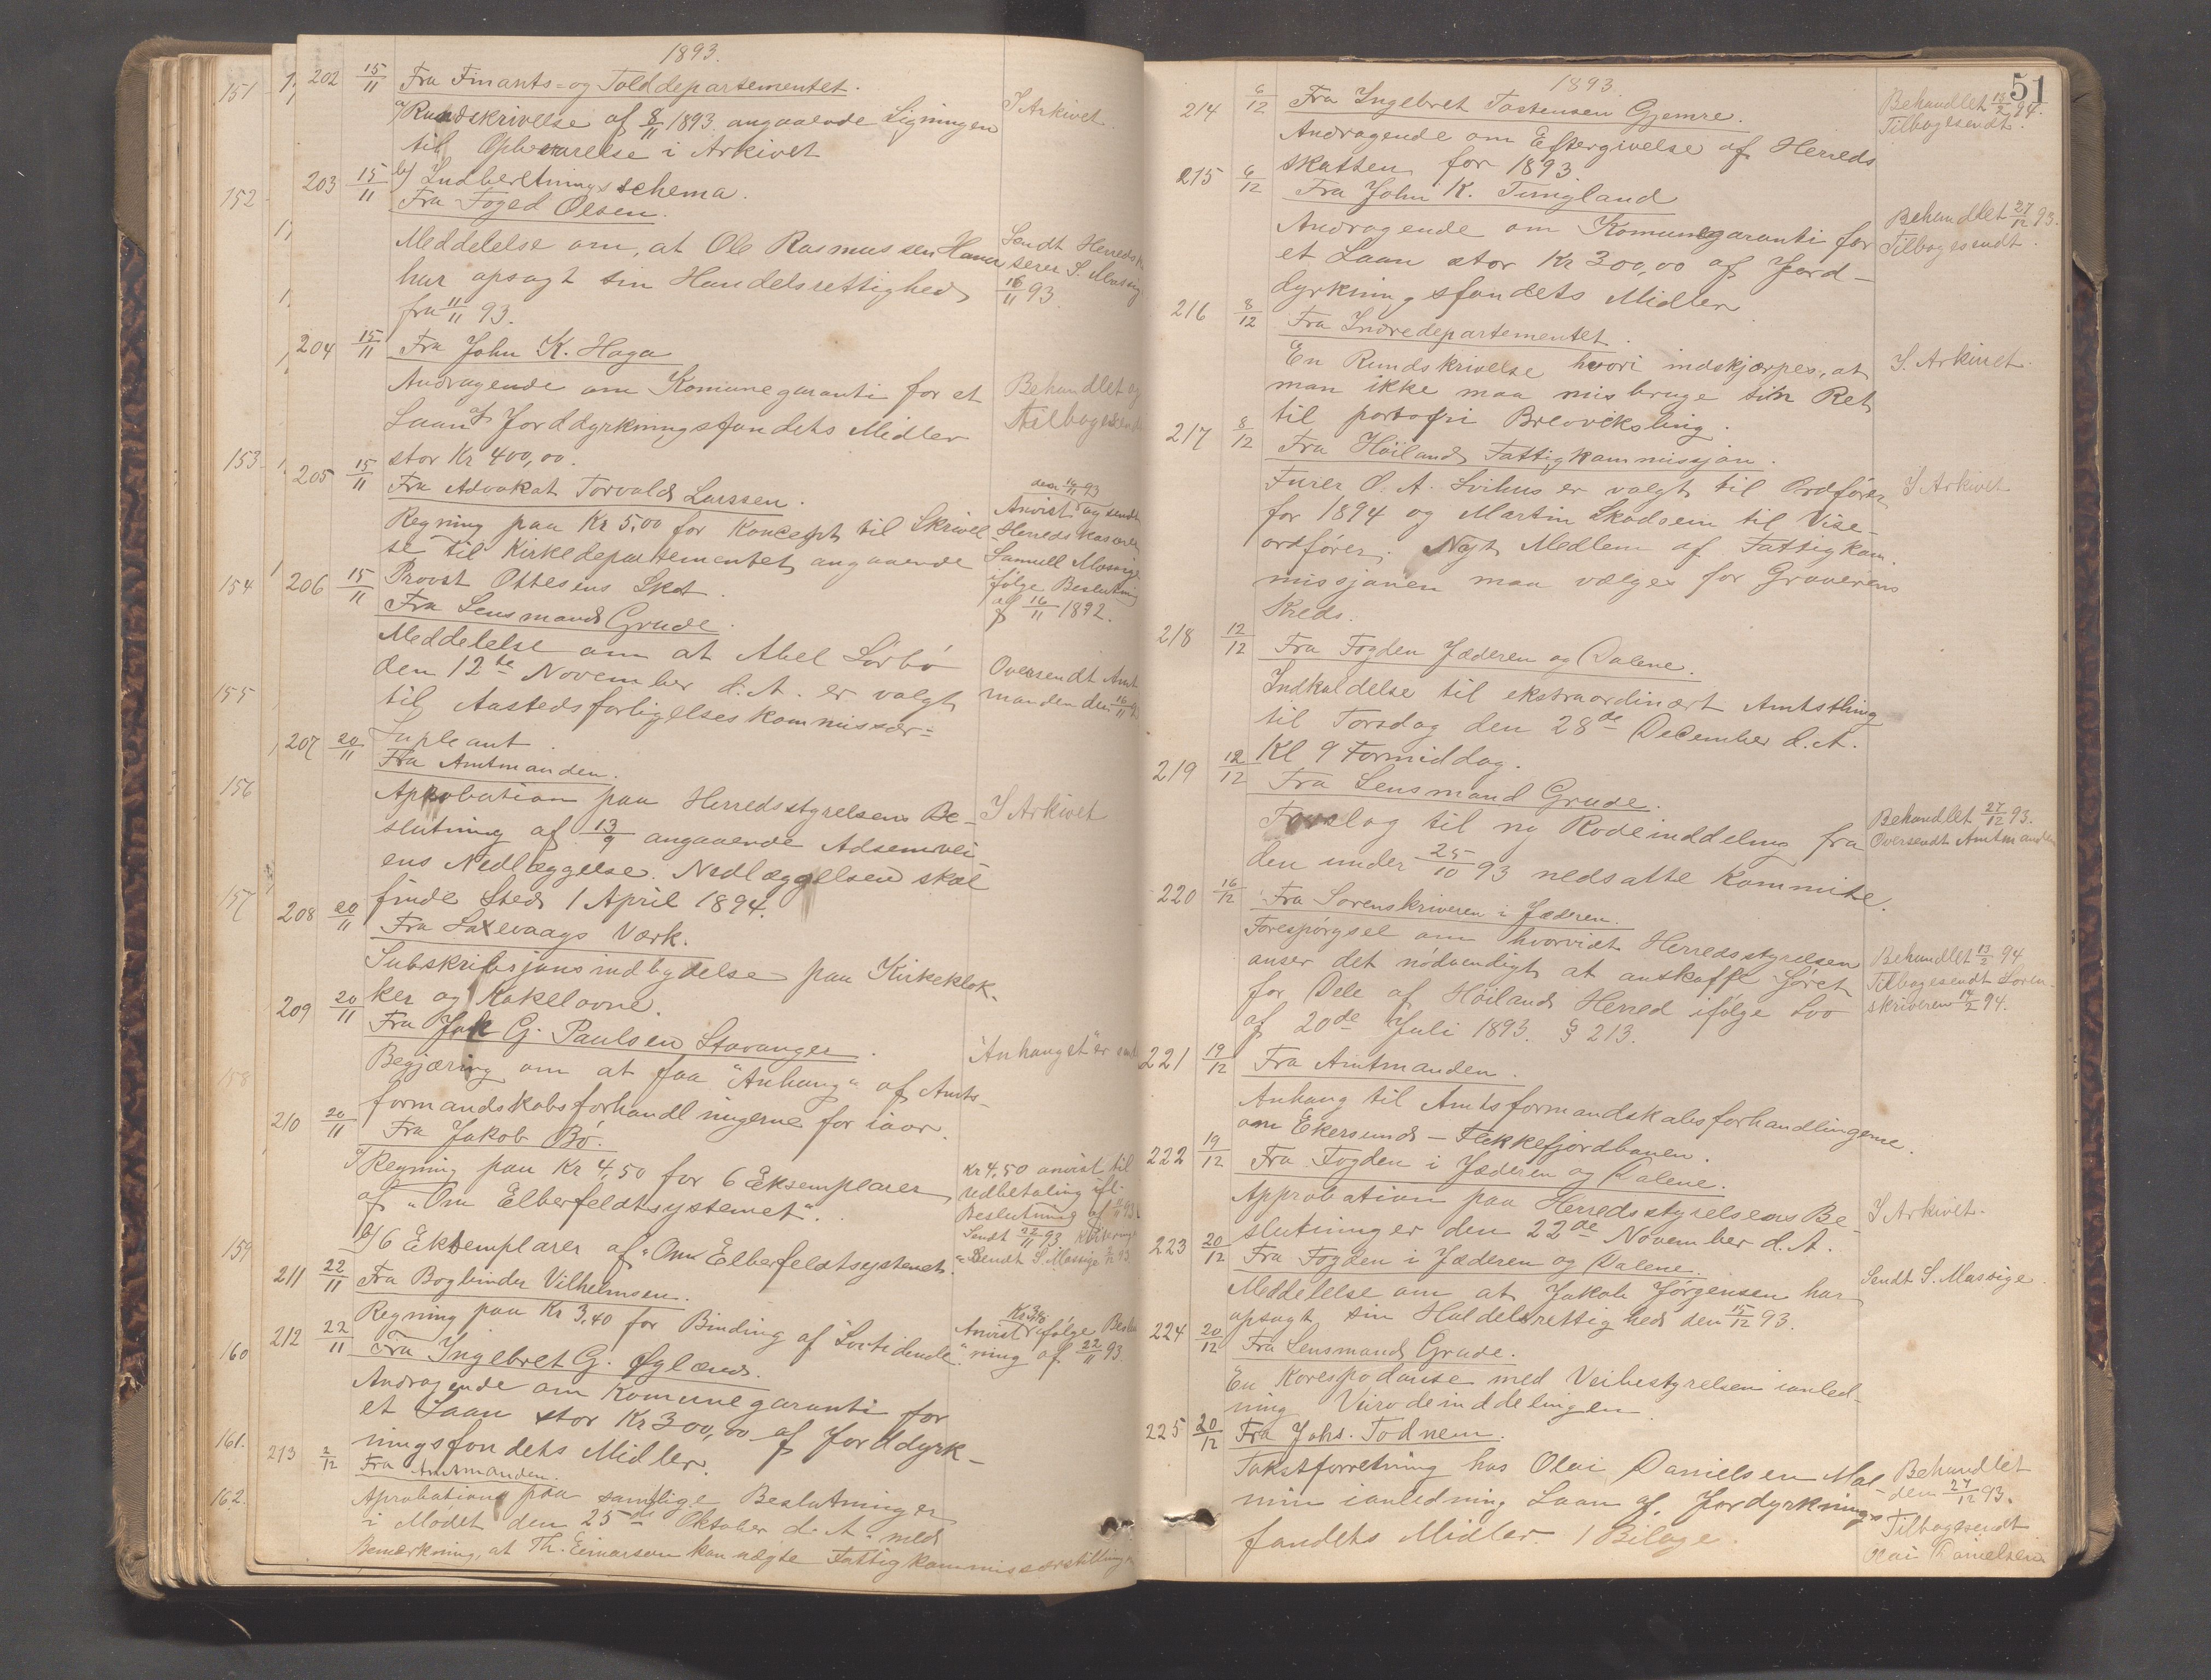 1893.
202 15/11 Fra Finants- og Tolddepartementet.
a) Rundskrivelse af 8/11 1893 angaaende Ligningen
til Opbevarelse i Arkivet
I Arkivet
b) Indberetningsschema.
203 15/11 Fra Foged Olsen.
Meddelelse om, at Ole Rasmussen Hana
har opsagt sin Handelsrettighed
fra 11/11 93.
Sendt Herreds
16/11 93.
204 15/11 Fra John K. Haga
Andragende om Komunegaranti for et
Laan af Jorddyrkningsfondets Midler
stor Kr 400,00.
Behandlet og
Tilbagesendt
205 15/11 Fra Advokat Torvald Larssen.
Regning paa Kr 5,00 for Koncept til Skrivel-
se til Kirkedepartementet angaaende
Provst Ottesens Skat.
den 16/11 93
Anvist og sendt
Herredskasserer
Samuell Mossige
ifølge Beslutning
af 16/11 1892.
206 15/11 Fra Lensmand Grude.
Meddelelse om at Abel Sørbø
den 12te November d. A. er valgt
til Aastedsforligelseskommissær=
Supleant.
Oversendt Amt
manden den 16/11
207 20/11 Fra Amtmanden.
Aprobation paa Herredsstyrelsens Be-
slutning af 13/9 angaaende Adsenvei-
ens Nedlæggelse. Nedlæggelsen skal
finde Sted 1 April 1894.
I Arkivet
208 20/11 Fra Laxevaags Værk.
Subskribsjonsindbydelse paa Kirkeklok-
ker og Kakelovne.
209 20/11 Fra Jak G. Paulsen Stavanger.
Begjæring om at faa "Anhang" af Amts-
formandskabsforhandlingerne for iaar.
"Anhanget" er
210 20/11 Fra Jakob Bø.
a) Regning paa Kr 4,50 for 6 Eksemplarer
af "Om Elberfeldtsystemet".
b) 6 Eksemplarer af "Om Elberfeldtsystemet.
Kr 4,50 anvist til
udbetaling ifl.
Beslutning af
Sendt 22/11 93
Sendt S. Mossige
211 22/11 Fra Bogbinder Vilhelmsen.
Regning paa Kr 3,40 for Binding af Lovtidende.
Kr 3,40
Anvist ifølge Beslut
ning af 22/11 93.
212 22/11 Fra Ingebret G. Øglænd.
Andragende om Komunegaranti for
et Laan stor Kr 300,00 af Jorddyrk-
ningsfondets Midler.
213 2/12 Fra Amtmanden.
Aprobation paa samtlige Beslutninger
i Mødet den 25de Oktober d. A. med
Bemærkning, at Th. Einarsen kan nægte Fattigkommissærstilling
151
152
153
154
155
156
157
158
159
160
161.
162.
51
1893
214 6/12 Fra Ingebret Tostensen Gjemre.
Andragende om Eftergivelse af Herreds
skatten for 1893.
Behandlet 13/2 94.
Tilbagesendt.
215 6/12 Fra John K. Tungland
Andragende om Komunegaranti for
et Laan stor Kr 300,00 af Jord-
dyrkningsfondets Midler
Behandlet 27/12 93.
Tilbagesendt.
216 8/12 Fra Indredepartementet.
En Rundskrivelse hvori indskjærpes, at
man ikke maa misbruge sin Ret
til portofri Brevveksling.
I Arkivet.
217 8/12 Fra Höiland Fattigkommissjon.
Furer O. A. Svihus er valgt til Ordfører
for 1894 og Martin Skadsem til Vise-
ordfører. Nyt Medlem af Fattigkom-
missjonen maa vælges for Graverens
Kreds.
I Arkivet
218 12/12 Fra Fogden Jæderen og Dalene.
Indkaldelse til ekstraordinært Amtsthing
til Torsdag den 28de December d. A.
Kl 9 Formiddag.
219 12/12 Fra Lensmand Grude.
Forslag til ny Rodeinddeling fra
den under 25/10 93 nedsatte Kommite.
Behandlet 27/12 93.
Oversendt Amtmanden
220 16/12 Fra Sorenskriveren i Jæderen.
Forespørgsel om hvorvidt Herredsstyrelsen
anser det nødvendigt at anskaffe Løret
for Dele af Höiland Herred ifølge Lov
af 20de Juli 1893. § 213.
Behandlet 13/2 94
Tilbagesendt Soren-
skriveren 14/2 94.
221 19/12 Fra Amtmanden.
Anhang til Amtsformandskabsforhandlingerne
om Ekersund - Flekkefjordbanen.
222 19/12 Fra Fogden i Jæderen og Dalene.
Approbation paa Herredsstyrelsens Be-
slutninger den 22de November d. A.
I Arkivet.
223 20/12 Fra Fogden i Jæderen og Dalene.
Meddelelse om at Jakob Jørgensen har
opsagt sin Haldelsrettighed den 15/12 93.
Sendt S. Mossige.
224 20/12 Fra Lensmand Grude.
En Korespodanse med Veibestyrelsen ianled-
ning Veirodeinddelingen
225 20/12 Fra Johs. Todnem.
Takstforretning hos Olai Danielsen Mal-
min ianledning Laan af Jordyrknings
fondets Midler. 1 Bilage.
Behandlet
den 27/12 93.
Tilbagesendt
Olai Danielsen